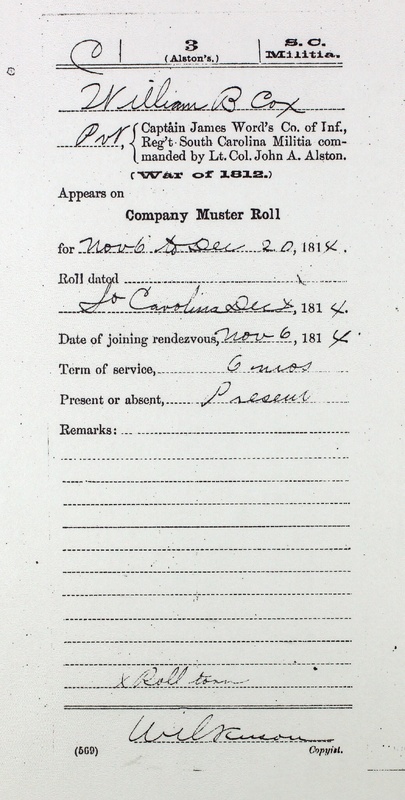 C 3 S. C.
(Alston's.) Militia.
William B Cox
Pvt, { Captain James Word's Co. of Inf.,
Reg't South Carolina Militia com-
manded by Lt. Col. John A. Alston.
(War of 1812.)
Appears on
Company Muster Roll
for Nov 6 to Dec 20, 1814.
Roll dated
So Carolina Dec x, 1814.
Date of joining rendezvous, Nov 6, 1814.
Term of service, 6 mos
Present or absent, Present
Remarks:
x Roll torn
Wilkinson
(569) Copyist.